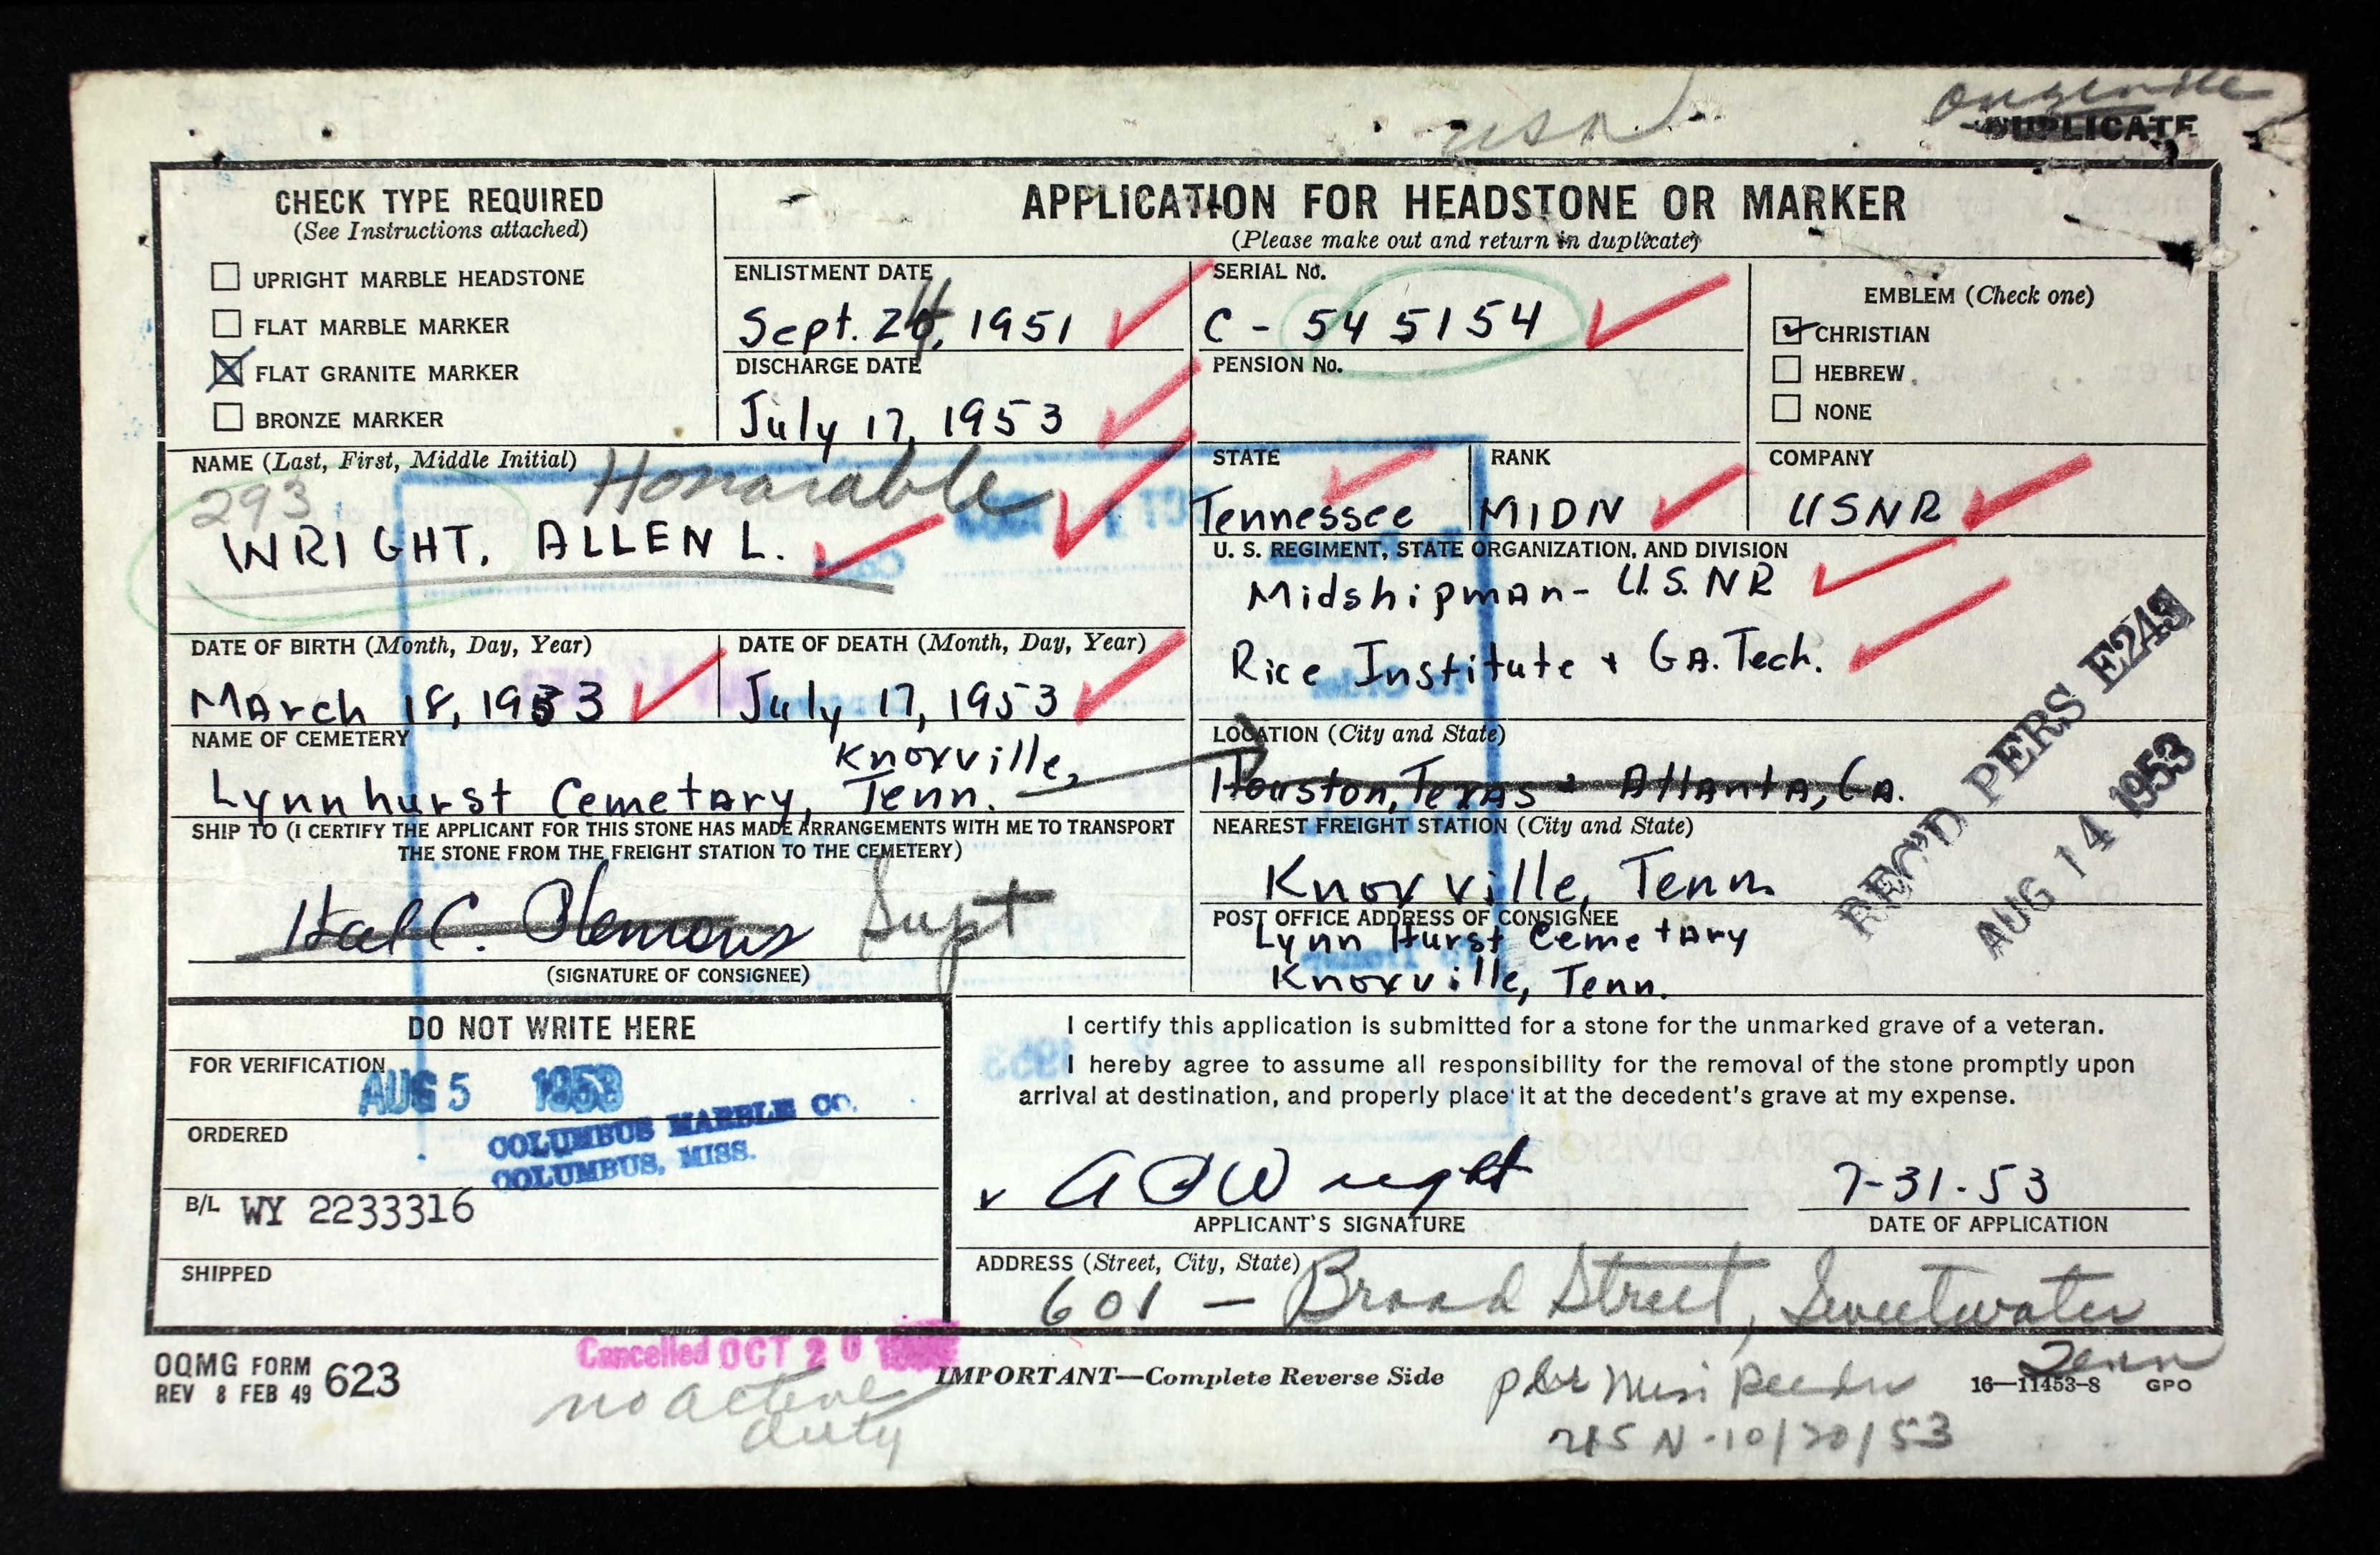 USN
DUPLICATE
CHECK TYPE REQUIRED
(See Instructions attached)
UPRIGHT MARBLE HEADSTONE
FLAT MARBLE MARKER
FLAT GRANITE MARKER
BRONZE MARKER
APPLICATION FOR HEADSTONE OR MARKER
(Please make out and return in duplicate)
ENLISTMENT DATE
Sept. 24, 1951
DISCHARGE DATE
July 17, 1953
SERIAL No.
C - 545154
PENSION No.
EMBLEM (Check one)
CHRISTIAN
HEBREW
NONE
NAME (Last, First, Middle Initial)
Honorable
293
WRIGHT, ALLEN L.
STATE
Tennessee
RANK
MIDN
COMPANY
USNR
U. S. REGIMENT, STATE ORGANIZATION, AND DIVISION
Midshipman - U.S. NR
Rice Institute + GA. Tech.
DATE OF BIRTH (Month, Day, Year)
March 18, 1933
DATE OF DEATH (Month, Day, Year)
July 17, 1953
REC'D PERS E243
AUG 14 1953
NAME OF CEMETERY
Knoxville,
Lynnhurst Cemetary, Tenn.
LOCATION (City and State)
Houston, Texas & Atlanta, GA.
SHIP TO (I CERTIFY THE APPLICANT FOR THIS STONE HAS MADE ARRANGEMENTS WITH ME TO TRANSPORT
THE STONE FROM THE FREIGHT STATION TO THE CEMETERY)
Hal C. Clemons Supt
(SIGNATURE OF CONSIGNEE)
NEAREST FREIGHT STATION (City and State)
Knoxville, Tenn.
POST OFFICE ADDRESS OF CONSIGNEE
Lynn Hurst Cemetary
Knoxville, Tenn.
DO NOT WRITE HERE
FOR VERIFICATION
AUG 5 1953
ORDERED
COLUMBUS MARBLE CO.
COLUMBUS, MISS.
B/L WY 2233316
SHIPPED
I certify this application is submitted for a stone for the unmarked grave of a veteran.
I hereby agree to assume all responsibility for the removal of the stone promptly upon
arrival at destination, and properly place it at the decedent's grave at my expense.
Wright
APPLICANT'S SIGNATURE
7-31-53
DATE OF APPLICATION
ADDRESS (Street, City, State)
601 - Broad Street, Sweetwater
Tenn
Cancelled OCT 20
no active
duty
OQMG FORM 623
REV 8 FEB 49
IMPORTANT—Complete Reverse Side
per Miss
USN - 10/20/53
16—11453-8 GPO